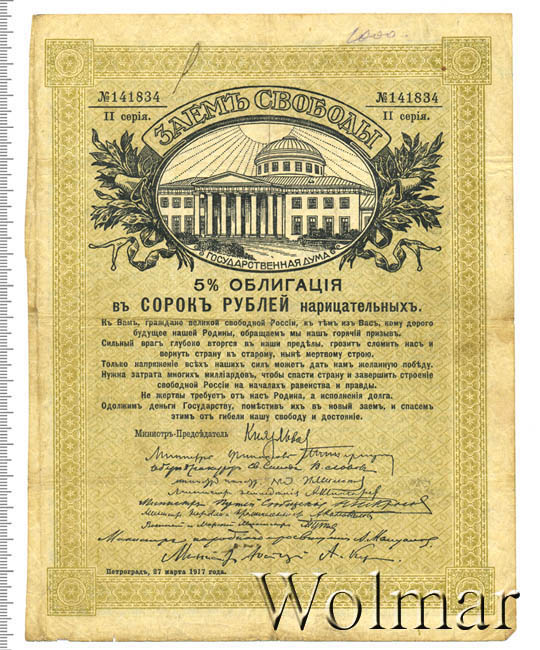 1000.
№141834 №141834
II серія. II серія.
ЗАЕМЪ СВОБОДЫ
ГОСУДАРСТВЕННАЯ ДУМА
5% ОБЛИГАЦІЯ
въ СОРОКЪ РУБЛЕЙ нарицательныхъ.
Къ Вамъ, граждане великой свободной Россіи, къ тѣмъ изъ Васъ, кому дорого
будущее нашей Родины, обращаемъ мы нашъ горячій призывъ.
Сильный врагъ глубоко вторгся въ наши предѣлы, грозитъ сломить насъ и
вернуть страну къ старому, нынѣ мертвому строю.
Только напряженіе всѣхъ нашихъ силъ можетъ дать намъ желанную побѣду.
Нужна затрата многихъ милліардовъ, чтобы спасти страну и завершить строеніе
свободной Россіи на началахъ равенства и правды.
Не жертвы требуетъ отъ насъ Родина, а исполненія долга.
Одолжимъ деньги Государству, помѣстивъ ихъ въ новый заемъ, и спасемъ
этимъ отъ гибели нашу свободу и достояніе.
Министръ-Предсѣдатель Князь Львов
Министръ Финансовъ
Министръ
Министръ земледѣлія А. Шингарев
Министръ Путей Сообщенія
Министръ
Военный и Морской Министръ
Министръ народнаго просвѣщенія А. Мануйлов
Министръ Юстиціи А. Кер
Петроградъ, 27 марта 1917 года.
Wolmar